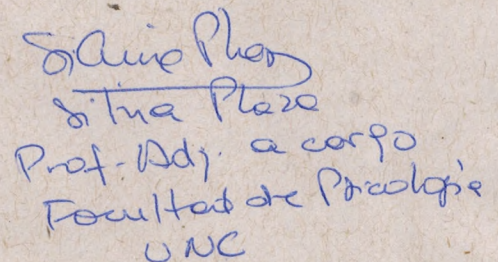 Silvia Plaza
Silvia Plaza
Prof. Adj. a cargo
Facultad de Psicología
UNC